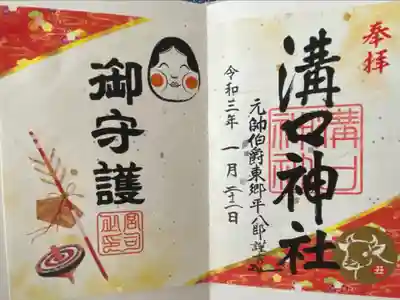 奉拝
溝口神社
溝口神社
元帥伯爵東郷平八郎謹書
令和三年 一月 二十二日
丑
御守護